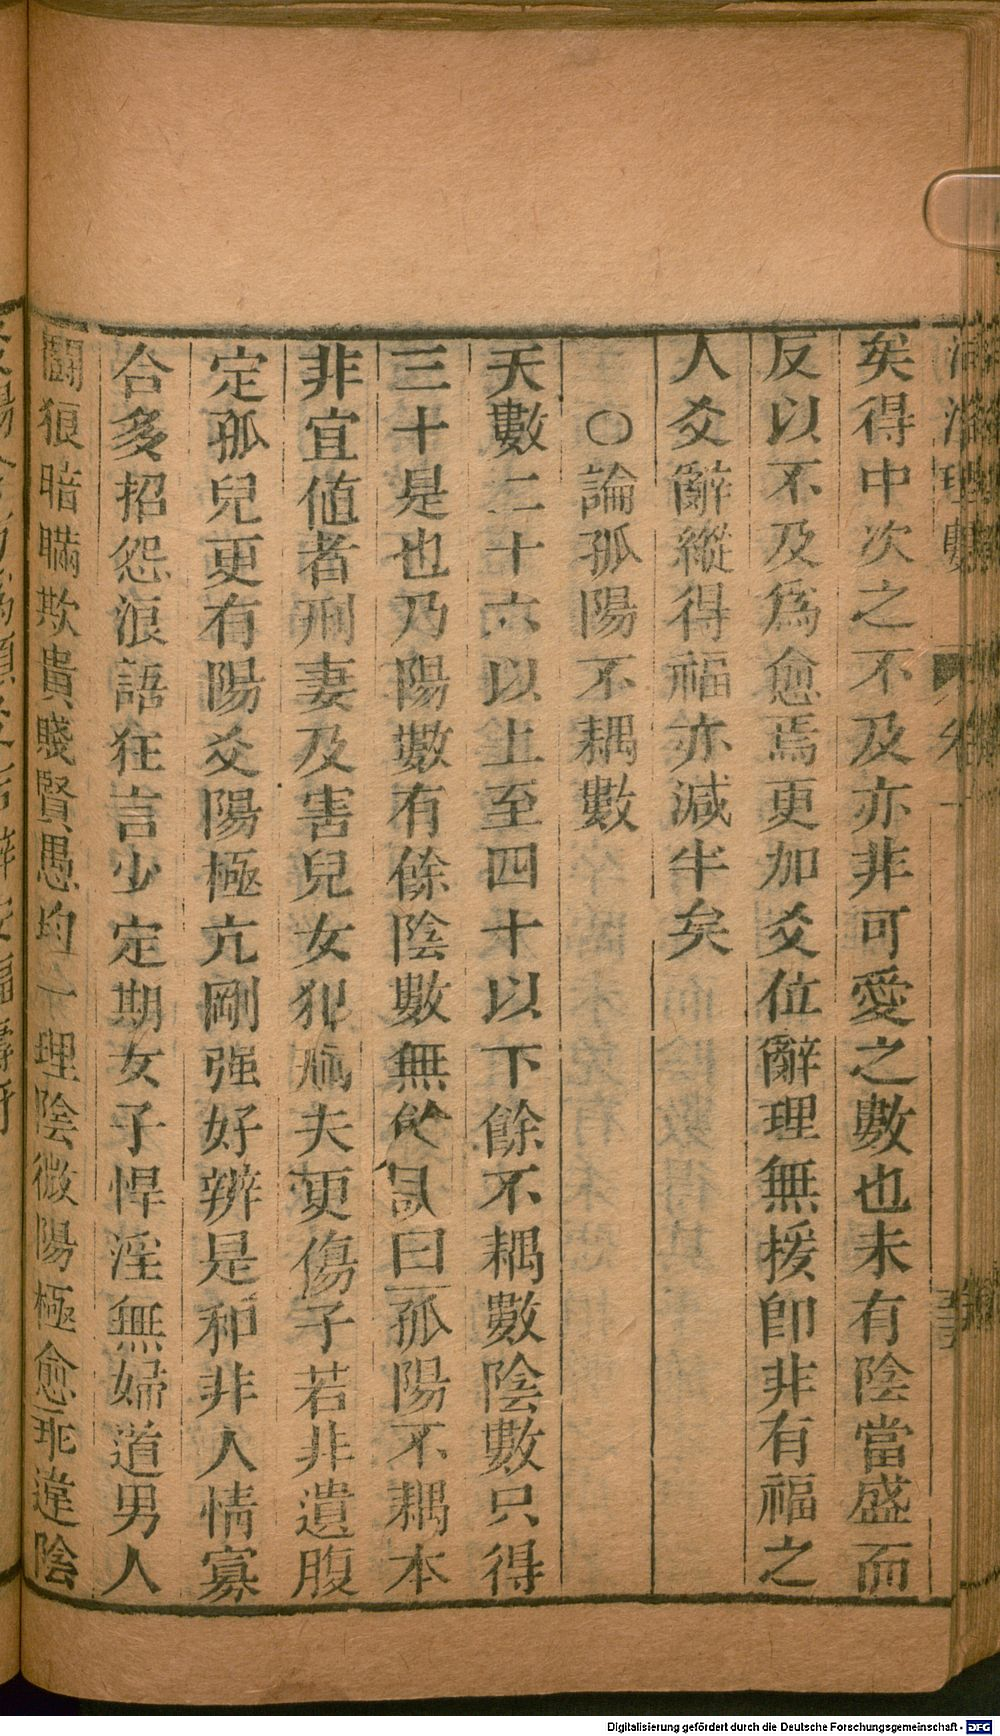 河洛理數
矣得中次之不及亦非可愛之數也未有陰當盛而
反以不及爲愈焉更加爻位辭理無援卽非有福之
人爻辭縱得福亦減半矣
○論孤陽不耦數
天數二十六以上至四十以下餘不耦數陰數只得
三十是也乃陽數有餘陰數無 曰孤陽不耦本
非宜値者刑妻及害兒女犯 夫更傷子若非遺腹
定孤兒更有陽爻陽極亢剛强好辨是和非人情寡
合多招怨浪語狂言少定期女子悍淫無婦道男人
鬪狠暗瞞欺貴賤賢愚均一理陰微陽極愈乖違陰
Digitalisierung gefördert durch die Deutsche Forschungsgemeinschaft - DFG